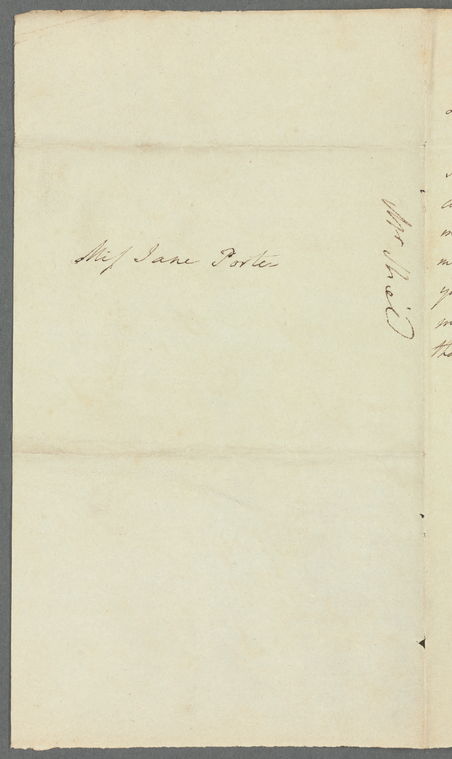 Miſs Jane Porter
Mr Shiel